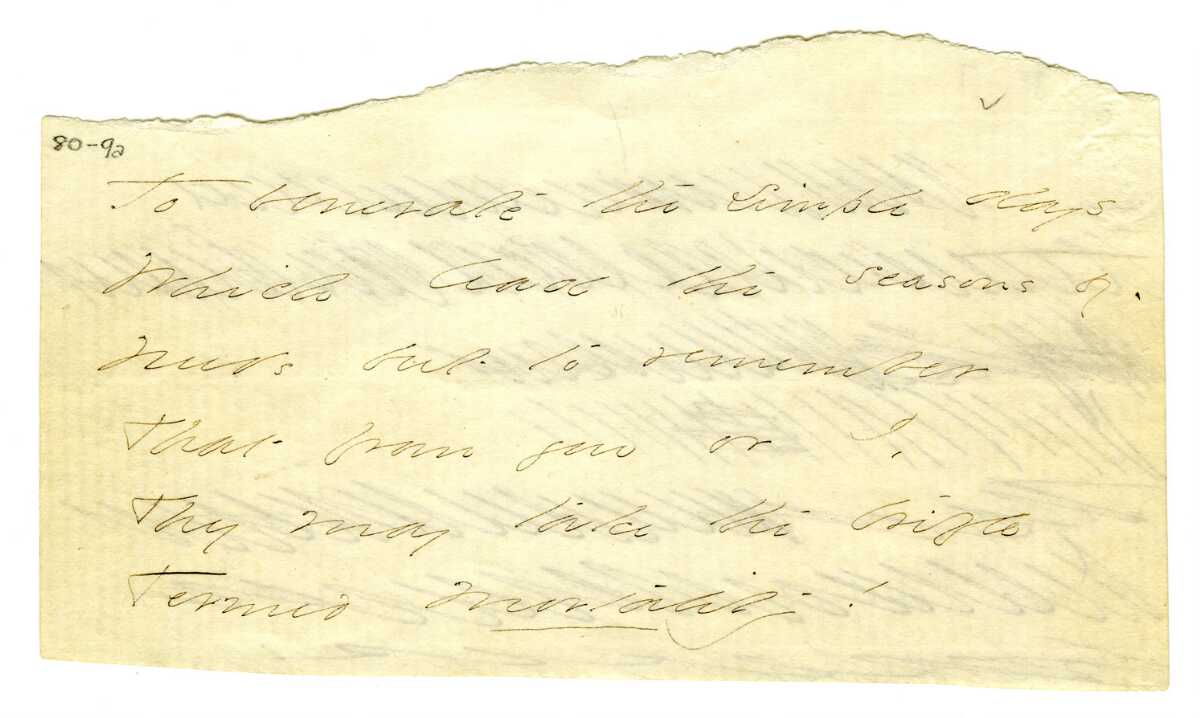 80-92
To venerate the simple days
Which lead the seasons by.
Needs but to remember
That from you or I,
They may take the trifle
Termed mortality!